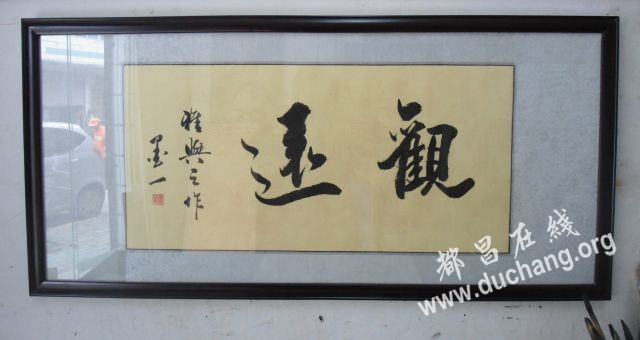 觀遠
雅興之作
墨一
都昌在线
www.duchang.org